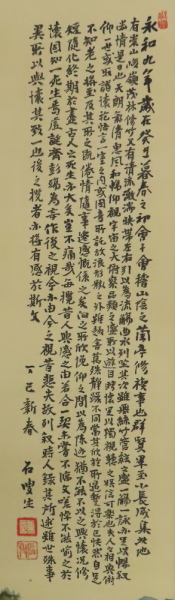 永和九年歲在癸丑暮春之初會于會稽山陰之蘭亭脩禊事也群賢畢至少長咸集此地
有崇山峻領茂林脩竹又有清流激湍映帶左右引以為流觴曲水列坐其次雖無絲竹管弦之盛一觴一詠亦足以暢敘
幽情是日也天朗氣清惠風和暢仰觀宇宙之大俯察品類之盛所以遊目騁懷足以極視聽之娛信可樂也夫人之相與俯
仰一世或取諸懷抱悟言一室之內或因寄所託放浪形骸之外雖趣舍萬殊靜躁不同當其欣於所遇暫得於己快然自足
不知老之將至及其所之既惓情隨事遷感慨係之矣向之所欣俛仰之間以為陳迹猶不能不以之興懷況脩
短隨化終期於盡古人云死生亦大矣豈不痛哉每攬昔人興感之由若合一契未嘗不臨文嗟悼不能喻之於
懷固知一死生為虛誕齊彭殤為妄作後之視今亦由今之視昔悲夫故列敘時人錄其所述雖世殊事
異所以興懷其致一也後之攬者亦將有感於斯文
丁巳新春 石叟生